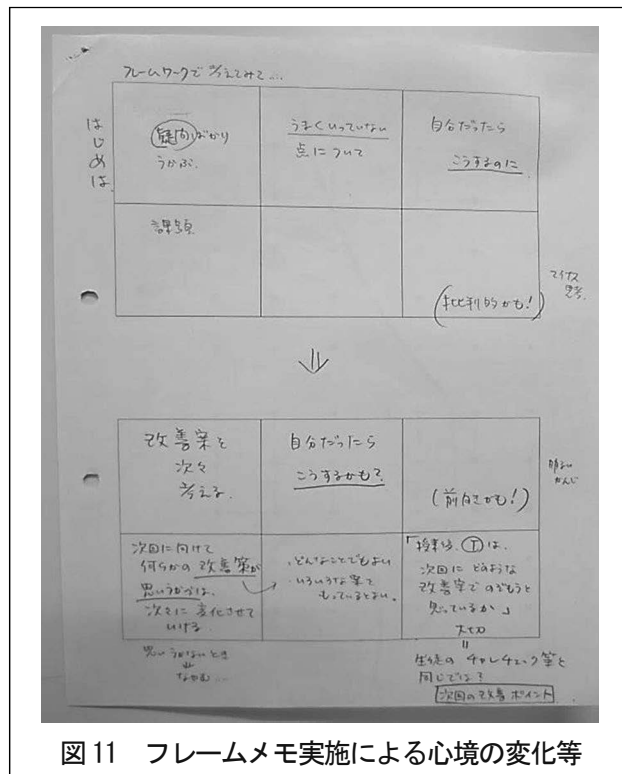 フレームワークで考えてみて…
はじめは
疑問ばかり
うかぶ。
うまくいっていない
点について
自分だったら
こうするのに
課題
(批判的かも!)
マイナス
思考
⇓
改善案を
次々
考える。
自分だったら
こうするかも?
(前向きかも!)
明るい
かんじ
次回に向けて
何らかの改善案が
思いうかべば、
次々に変化させて
いける
・どんなことでもよい
・いろいろな案を
もっているとよい。
「授業後、Ⓣは、
次回にどのような
改善案でのぞもうと
思っているか」
大切
思いうかないとき
↓
なやむ…
=
生徒のチャレチェック筆と
同じでは?
次回の改善ポイント
図11 フレームメモ実施による心境の変化等